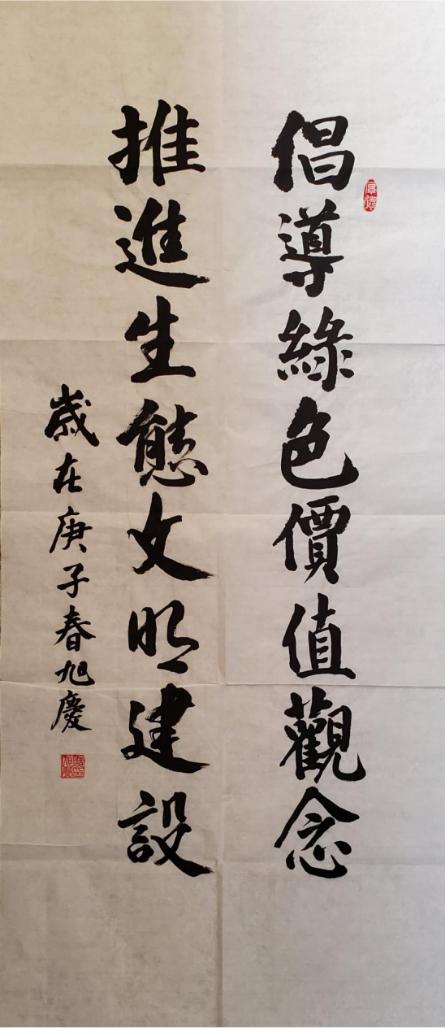 倡導綠色價值觀念
推進生態文明建設
歲在庚子春旭慶